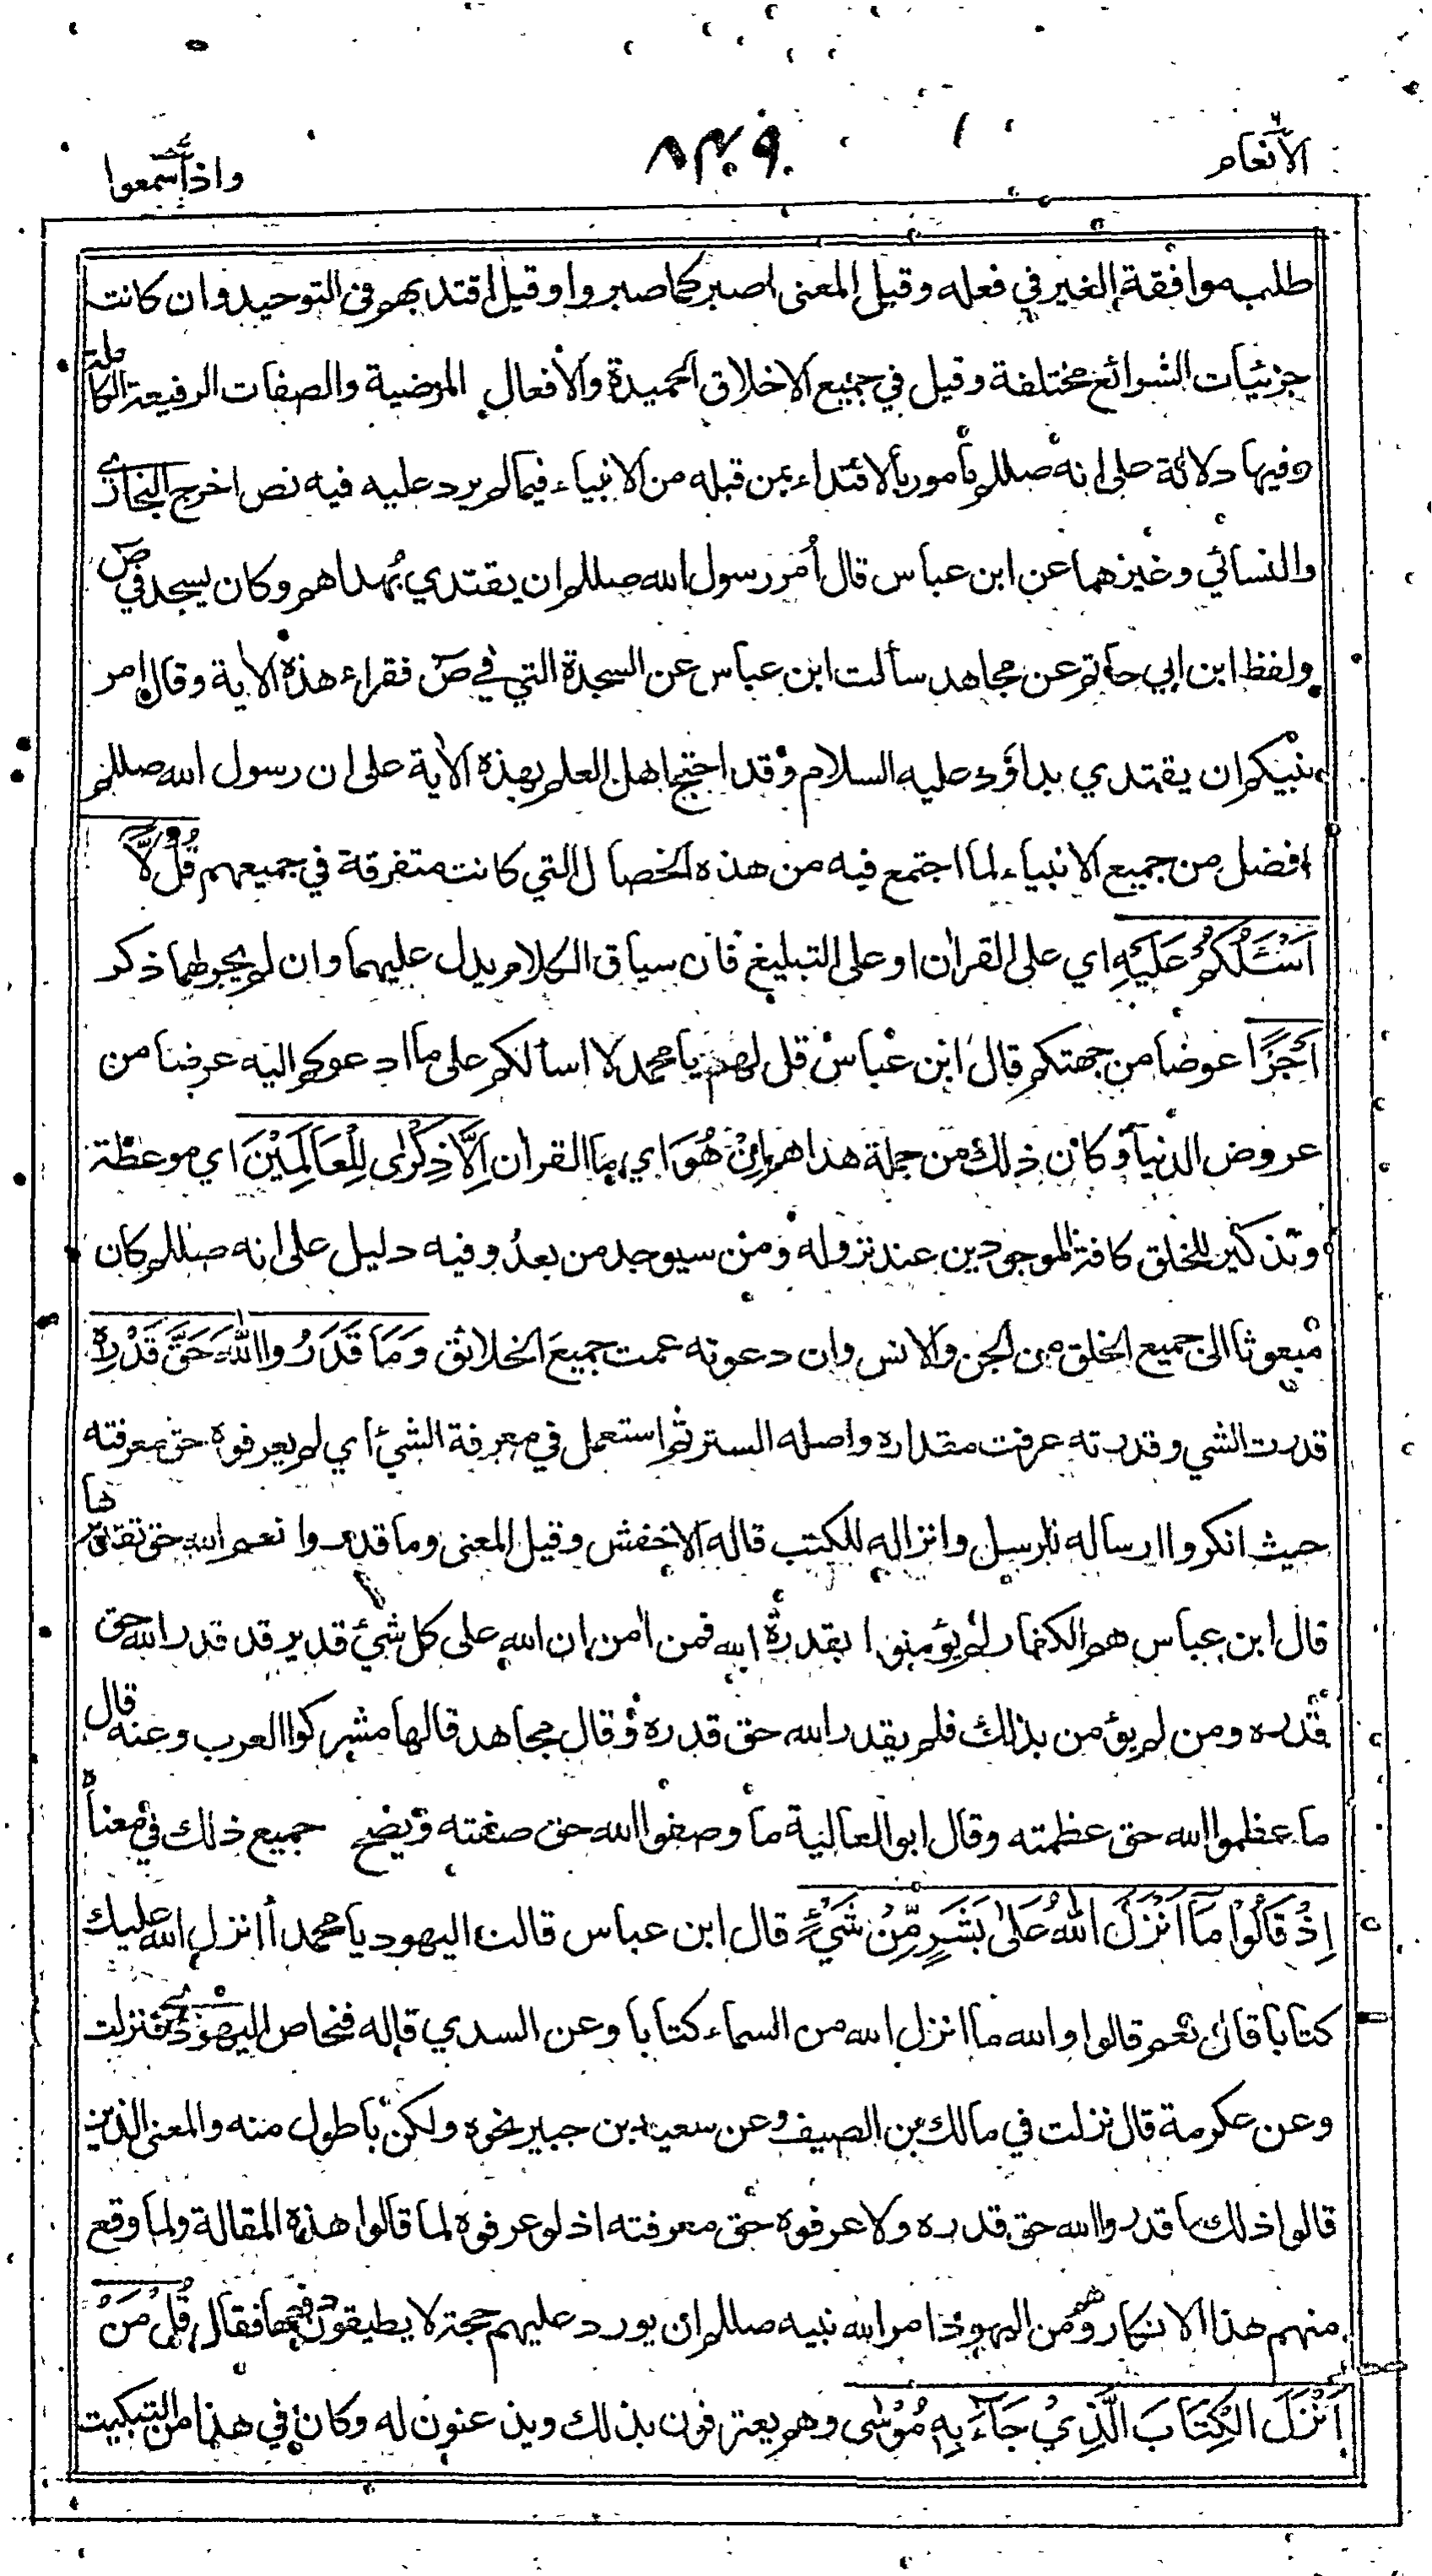 الأنعام
٨٣٠٩
واذا سمعوا
طلب موافقة الغير في فعله وقيل المعنى اصبر كما صبروا وقيل اقتد بهم في التوحيد وان كانت
جزئيات الشرائع مختلفة وقيل في جميع الاخلاق الحميدة والأفعال المرضية والصفات الرفيعة الكاملة
وفيها دلالة على انه صللم مأمور بالاقتداء بمن قبله من الانبياء فيما لم يرد عليه فيه نص اخرج البخاري
والنسائي وغيرهما عن ابن عباس قال أمر رسول الله صللم ان يقتدي بهداهم وكان يسجد في ص
ولفظ ابن ابي حاتم عن مجاهد سألت ابن عباس عن السجدة التي في ص فقراء هذه الأية وقال امر
نبيكم ان يقتدي بداؤد عليه السلام وقد احتج اهل العلم بهذه الأية على ان رسول الله صللم
افضل من جميع الانبياء لما اجتمع فيه من هذه الخصال التي كانت متفرقة في جميعهم قُلْ لَّا
اَسْئَلُكُمْ عَلَيْهِ اي على القران او على التبليغ فان سياق الكلام يدل عليهما وان لم يجر لهما ذكر
اَجْرًا عوضا من جهتكم قال ابن عباس قل لهم يا محمد لا اسألكم على ما ادعوكم اليه عرضا من
عروض الدنيا وكان ذلك من جملة هداهم اِنْ هُوَ اي ما القران اِلَّا ذِكْرٰى لِلْعَالَمِيْنَ اي موعظة
وتذكير للخلق كافة الموجودين عند نزوله ومن سيوجد من بعد وفيه دليل على انه صللم كان
مبعوثا الى جميع الخلق من الجن والانس وان دعوته عمت جميع الخلائق وَمَا قَدَرُوا اللّٰهَ حَقَّ قَدْرِهٖ
قدرت الشي وقدرته عرفت مقداره واصله الستر ثم استعمل في معرفة الشئ اي لم يعرفوه حق معرفته
حيث انكروا ارساله للرسل وانزاله للكتب قاله الاخفش وقيل المعنى وما قدروا نعم الله حق تقديرها
قال ابن عباس هم الكفار لم يؤمنوا بقدرة الله فمن أمن ان الله على كل شئ قدير قد قدر الله حق
قدره ومن لم يؤمن بذلك فلم يقدر الله حق قدره وقال مجاهد قالها مشركوا العرب وعنه قال
ما عظموا الله حق عظمته وقال ابو العالية ما وصفوا الله حق صفته ويضح جميع ذلك في معناه
اِذْ قَالُوْا مَا اَنْزَلَ اللّٰهُ عَلٰى بَشَرٍ مِّنْ شَيْءٍ قال ابن عباس قالت اليهود يا محمد أانزل الله عليك
كتابا قال نعم قالوا والله ما انزل الله من السماء كتابا وعن السدي قاله فنحاص اليهودي فنزلت
وعن عكرمة قال نزلت في مالك بن الصيف وعن سعيد بن جبير نحوه ولكن بأطول منه والمعنى الذين
قالوا ذلك ما قدروا الله حق قدره ولا عرفوه حق معرفته اذ لو عرفوه لما قالوا هذه المقالة ولما وقع
منهم هذا الانكار وهم من اليهود امر الله نبيه صللم ان يورد عليهم حجة لا يطيقون دفعها فقال قُلْ مَنْ
اَنْزَلَ الْكِتَابَ الَّذِيْ جَآءَ بِهٖ مُوْسٰى وهم يعترفون بذلك ويذعنون له وكان في هذا من التبكيت